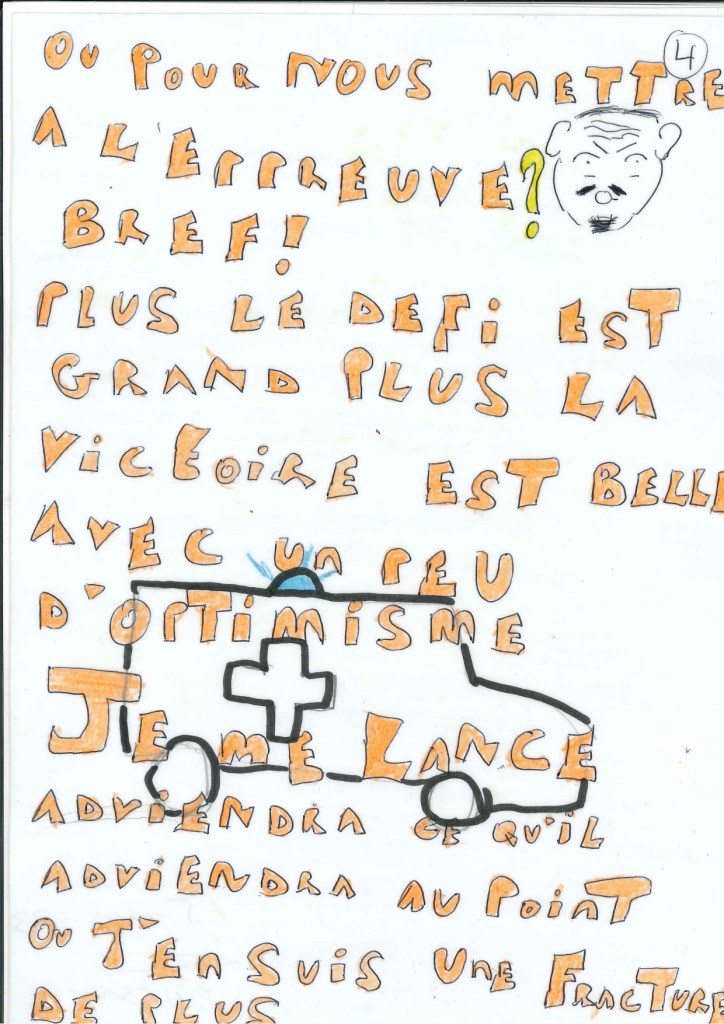 4
OU POUR NOUS METTRE
A L'EPPREUVE?
BREF!
PLUS LE DEFI EST
GRAND PLUS LA
VICTOIRE EST BELLE
AVEC UN PEU
D'OPTIMISME
JE ME LANCE
ADVIENDRA CE QU'IL
ADVIENDRA AU POINT
OU T'EN SUIS UNE FRACTURE
DE PLUS